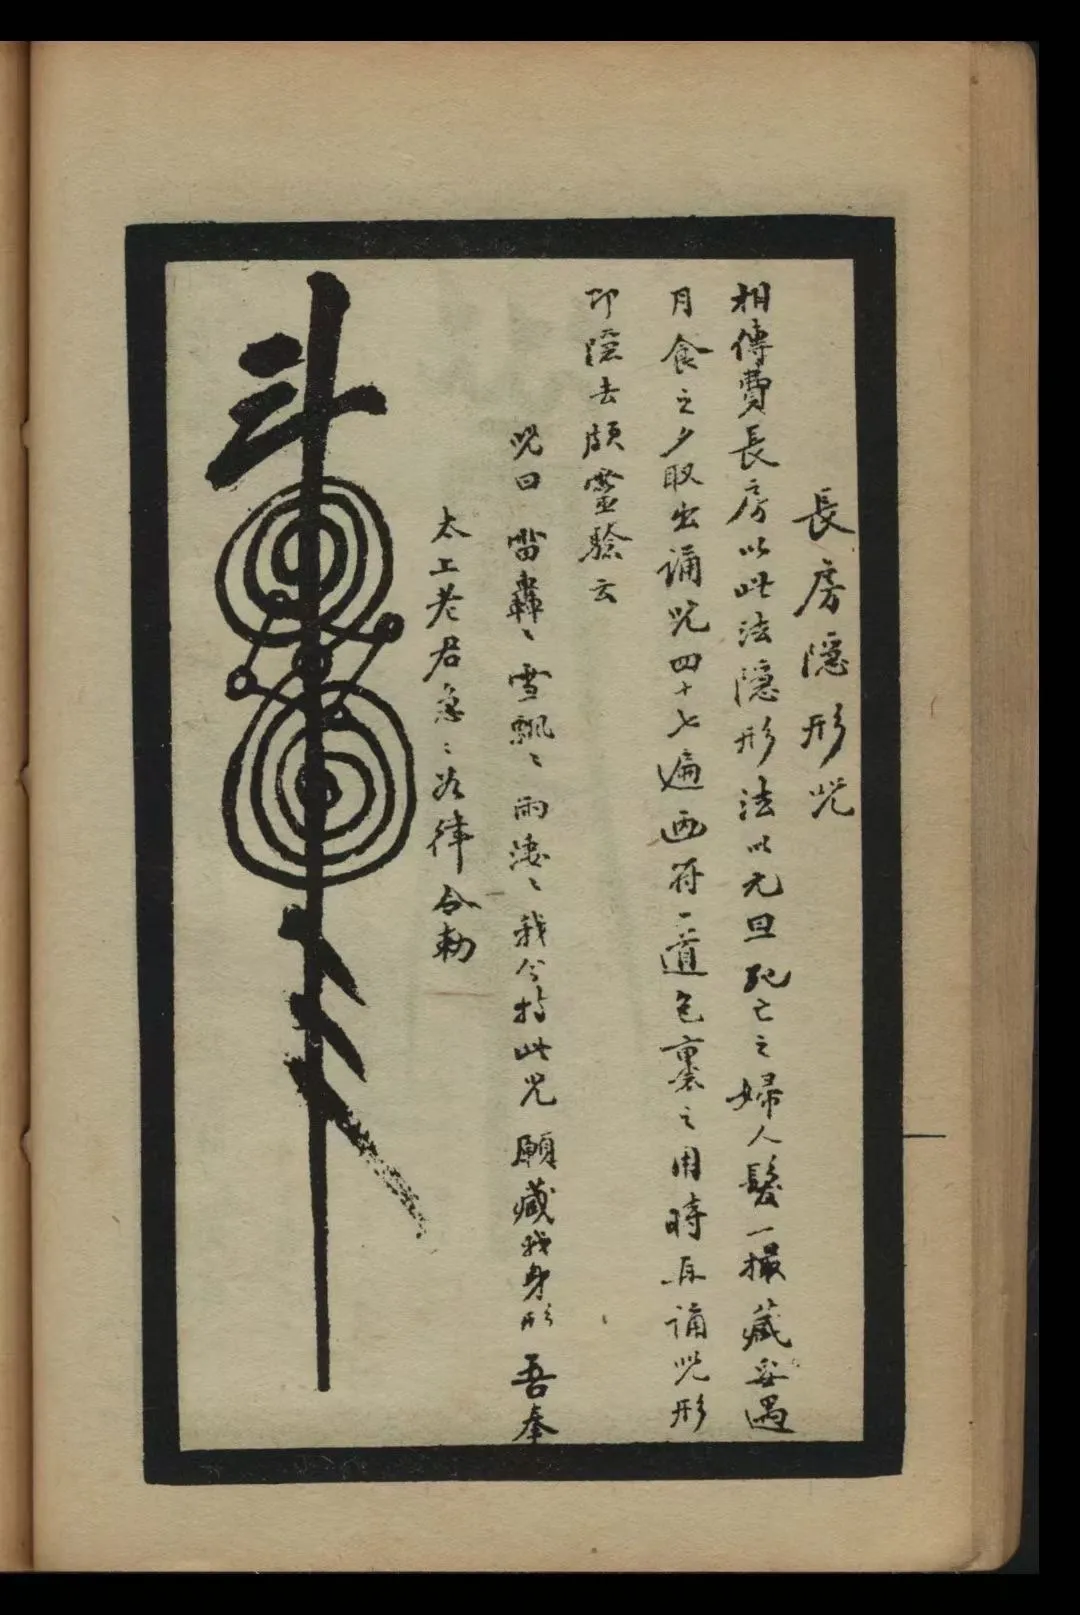 長房隱形咒
相傳費長房以此法隱形法以元旦死亡之婦人髮一撮藏妥遇
月食之夕取出誦咒四十七遍畫符一道包裹之用時再誦咒形
即隱去頗靈驗云
咒曰 雷轟〻雪飄〻雨淒〻我今持此咒願藏我身形吾奉
太上老君急〻如律令勅
斗